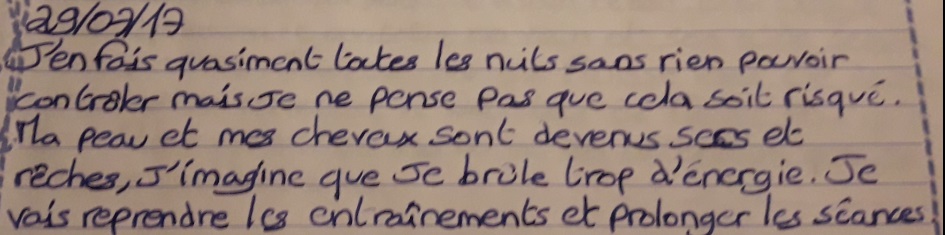 29/07/17
J'en fais quasiment toutes les nuits sans rien pouvoir
contrôler mais Je ne pense pas que cela soit risqué.
Ma peau et mes cheveux sont devenus secs et
rêches, J'imagine que Je brûle trop d'énergie. Je
vais reprendre les entraînements et prolonger les séances.